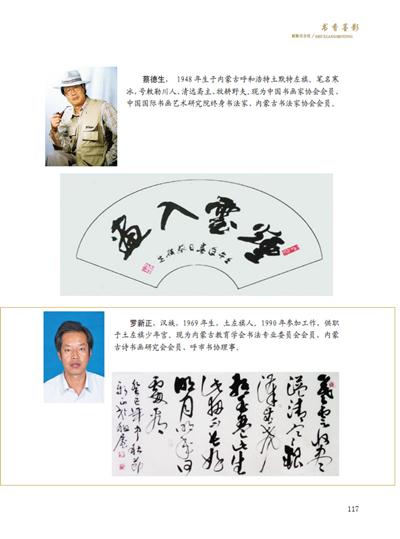 书香墨影
SHUXIANGMOYING
蔡德生， 1948年生于内蒙古呼和浩特土默特左旗。笔名寒
冰，号敕勒川人、清远斋主、牧耕野夫。现为中国书画家协会会员，
中国国际书画艺术研究院终身书法家，内蒙古书法家协会会员。
烟云入画
罗新正，汉族，1969年生，土左旗人，1990年参加工作，供职
于土左旗少年宫。现为内蒙古教育学会书法专业委员会会员、内蒙
古诗书画研究会会员、呼市书协理事。
暮云收尽
溢清寒银
汉无声转
玉盘此生
此夜不长好
明月明年何
处看
117